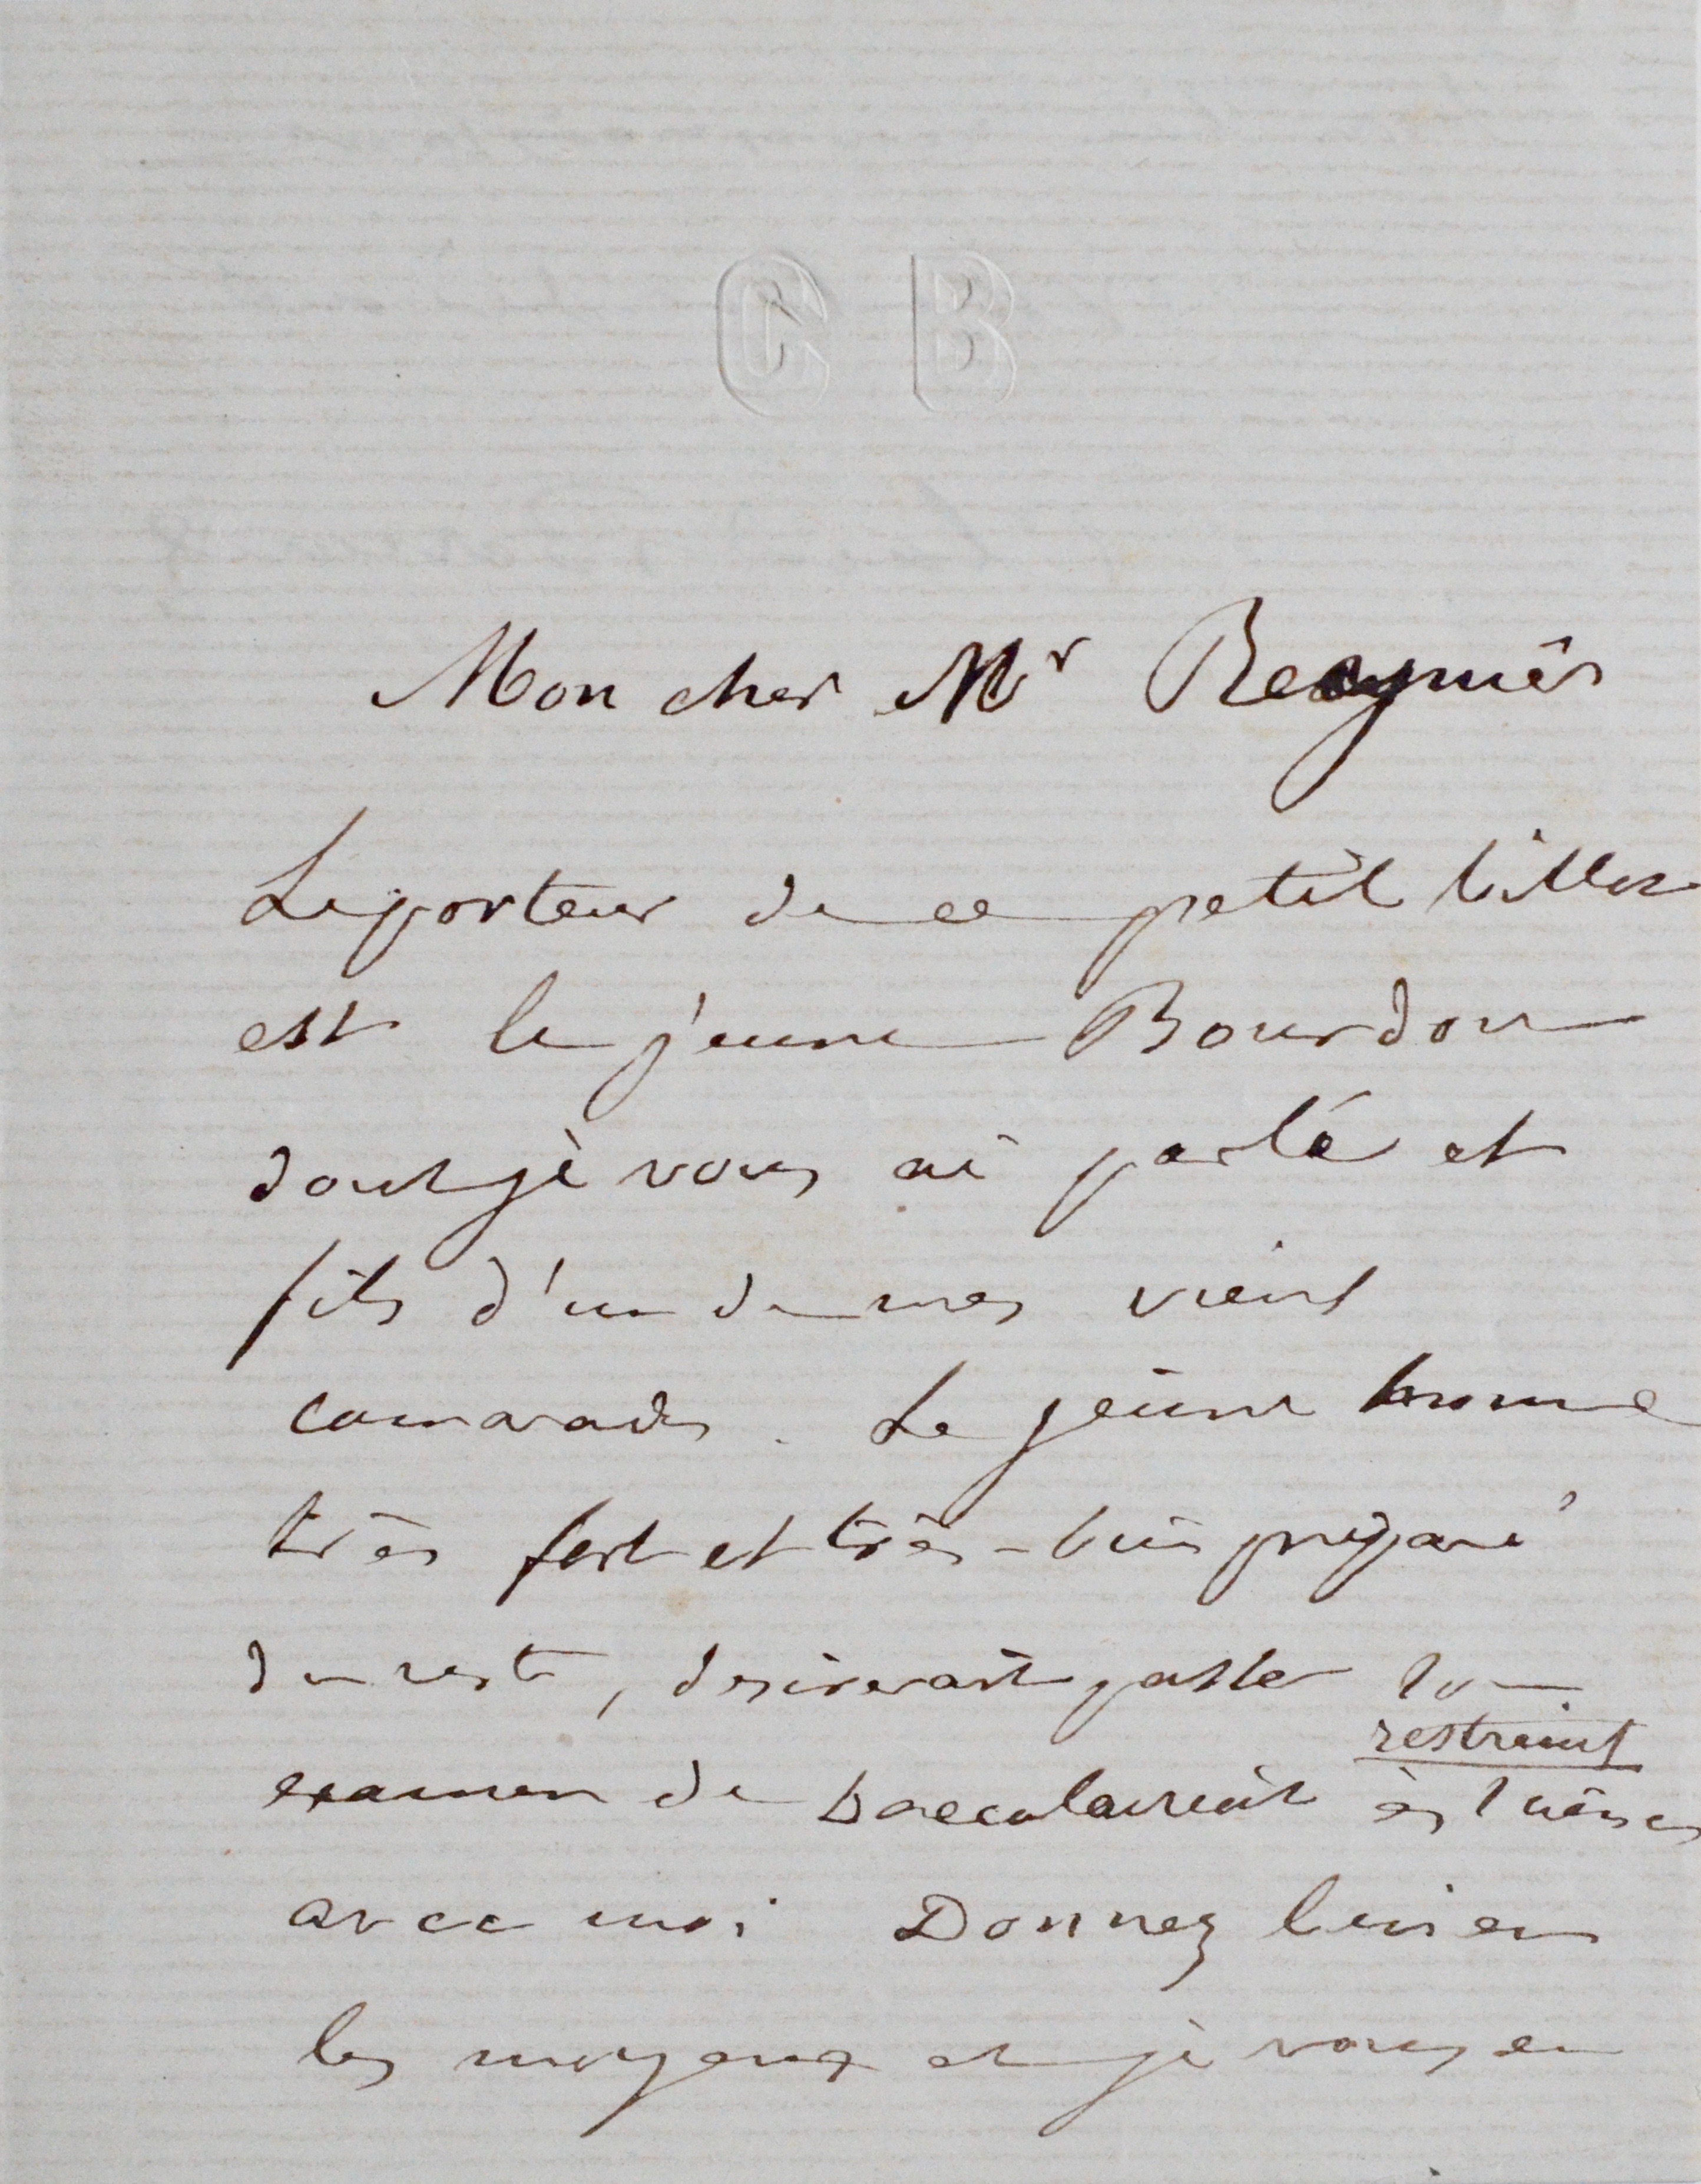 C B
Mon cher Mr Regnier
Le porteur de ce petit billet
est le jeune Bourdon
dont je vous ai parlé et
fils d'un de mes vieux
camarades. Le jeune homme
très fort et très-bien préparé
du reste, desirerait passer son
restraint
examen de baccalauréat ès sciences
avec moi Donnez lui en
les moyens et je vous en